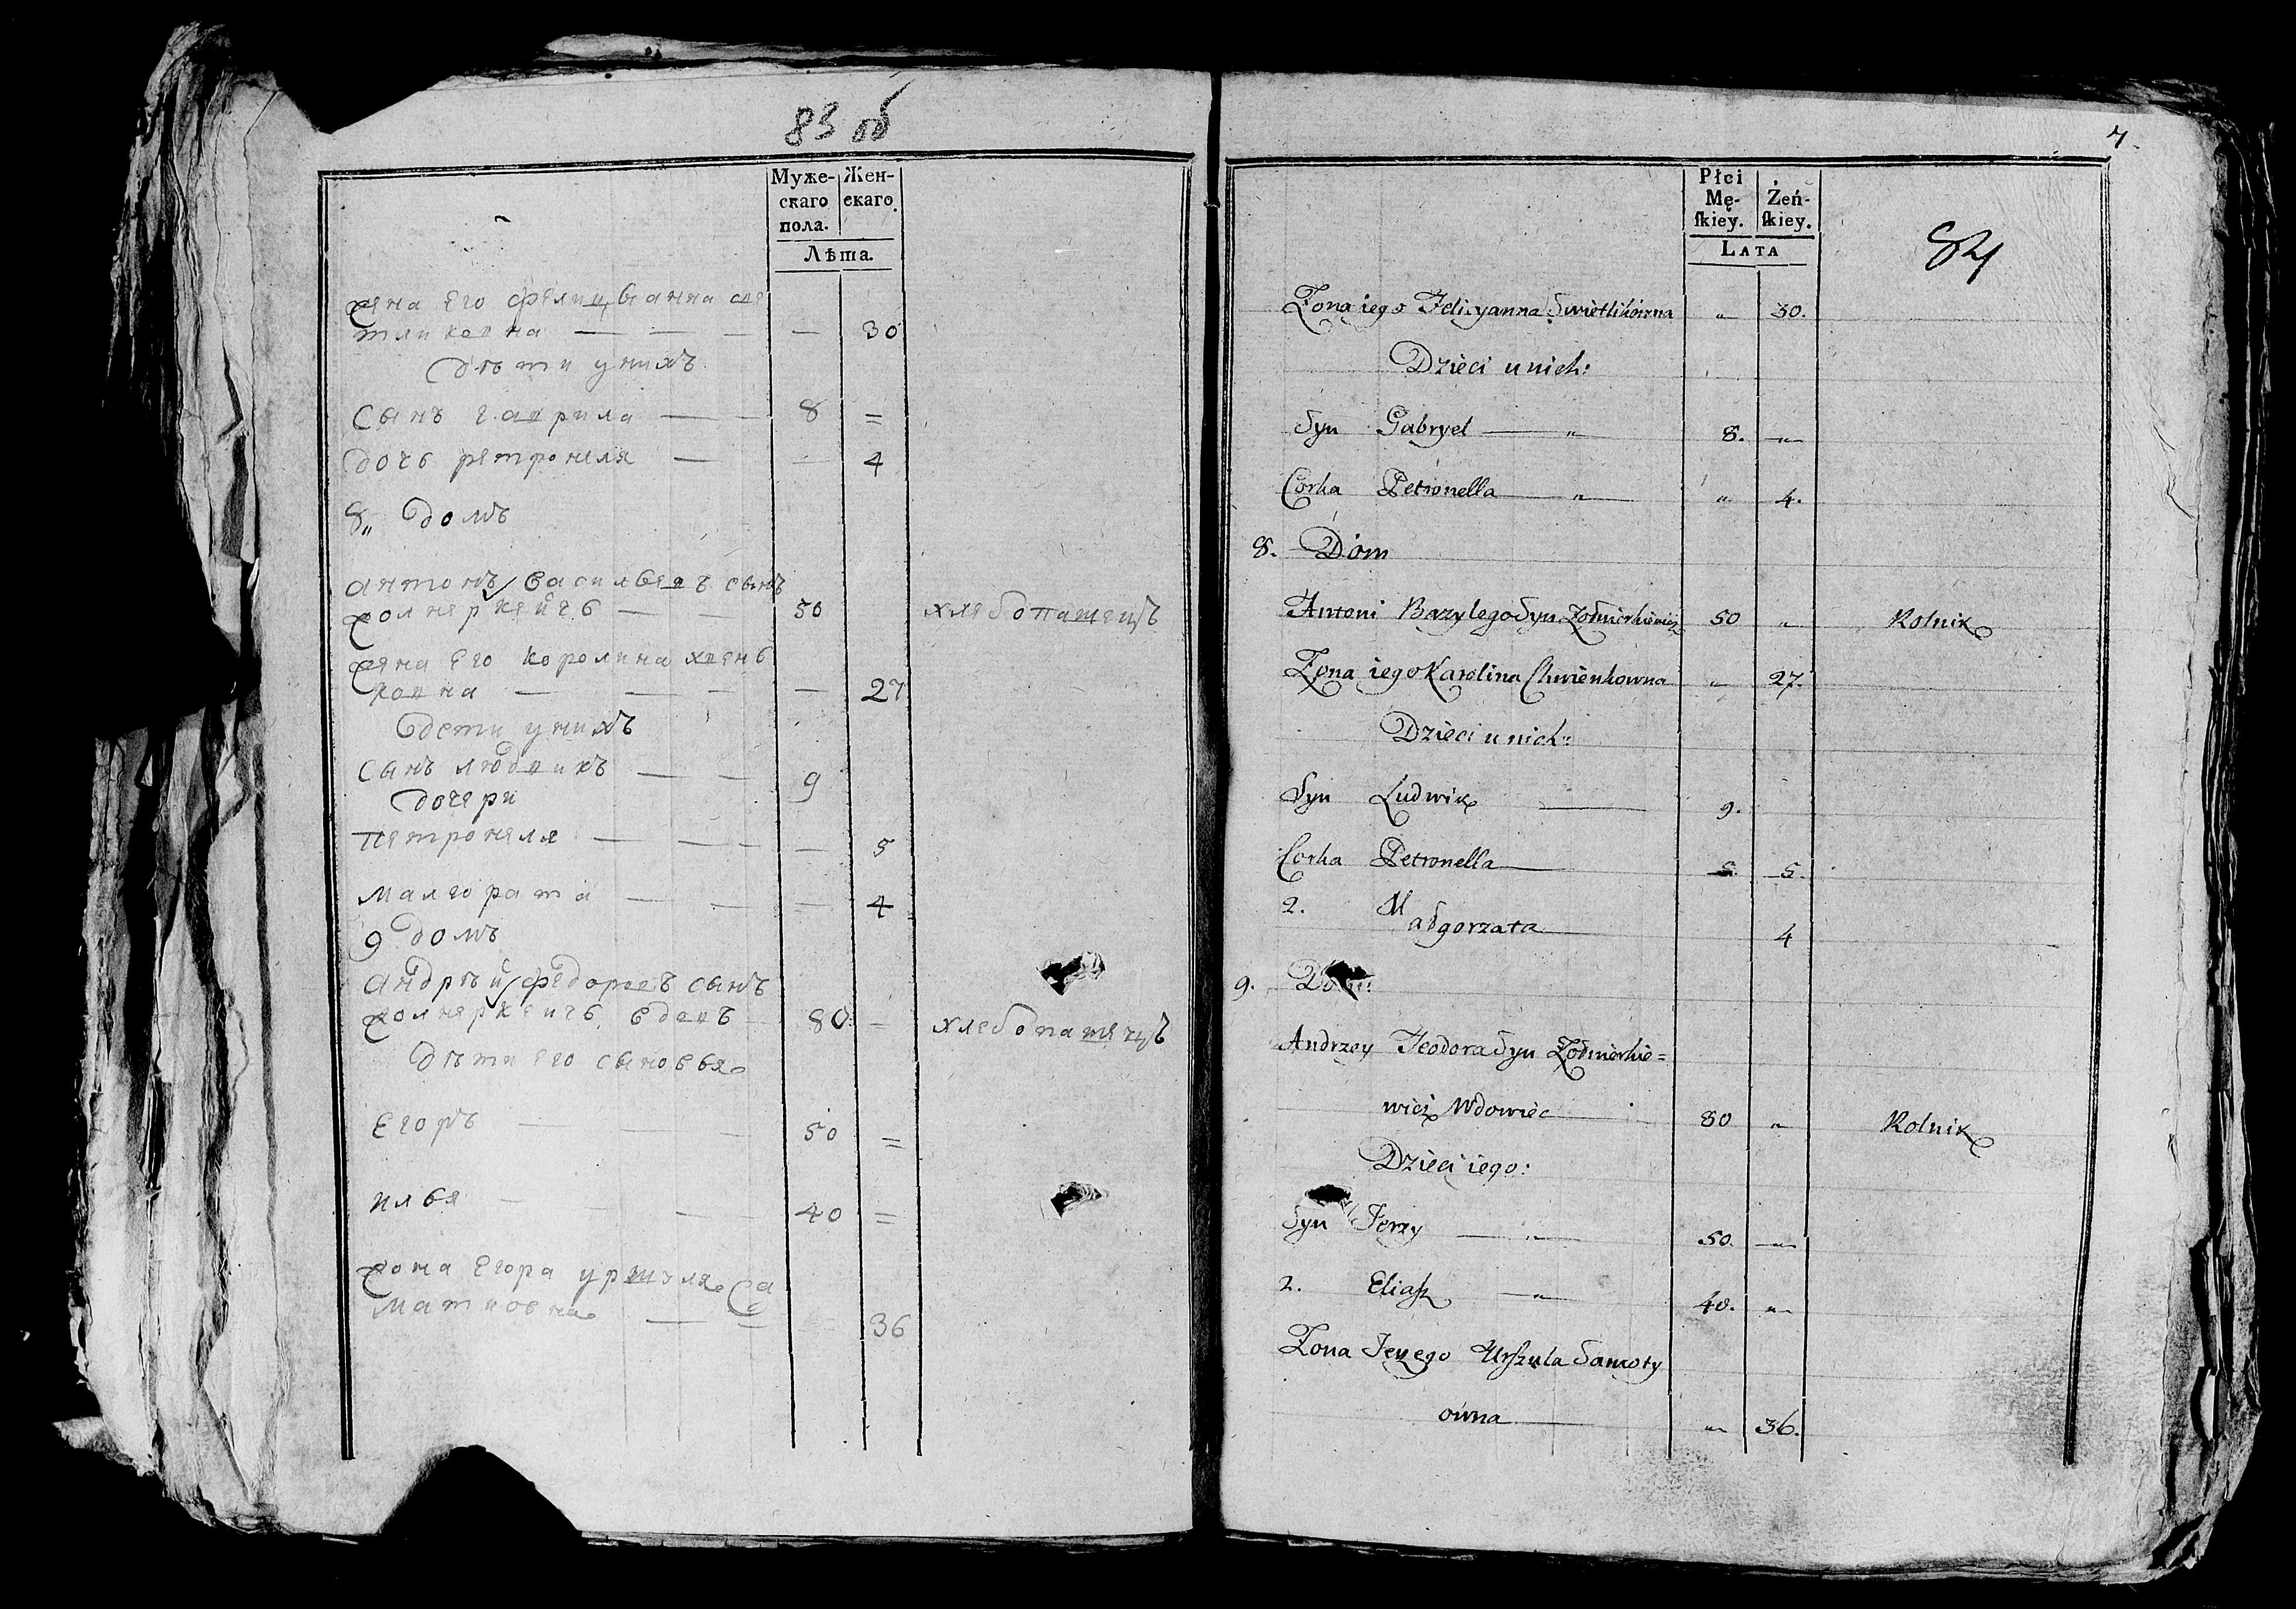 83 об
Муже-
скаго
пола.
Жен-
скаго
Лѣта.
жена Его Фелицыанна све
тликовна — — — — 30
дѣти унихъ
Сынъ гаврила — — 8 =
дочь петронеля — — 4
8„ домъ
антонъ Васильевъ сынъ
жолнеркевичь — — 50 хлебопашецъ
жена Его королина хвень
ковна — — — — 27
дети унихъ
сынъ людвикъ — — 9
дочери
петронеля — — — — 5
малгората — — — 4
9 домъ
андрѣй Федоровъ сынъ
жолнеркевичь вдовъ 80 = хлебопашецъ
дѣти его сыновья
Егоръ — — 50 =
илья — — — 40 =
жона Егора уршуля Са
матиовна — = 36
7.
Płci
Mę-
ſkiey.
Żeń-
ſkiey.
LATA
84
Zona iego Felicyanna Swietlikowna „ 30.
Dzieci u nich:
Syn Gabryel — „ — 8. „
Corka Petronella — „ — „ 4.
8. Dom
Antoni Bazylego Syn Zołnierkiewicz 50 „ Rolnik
Zona iego Karolina Chwienkowna „ 27.
Dzieci u nich:
Syn Ludwik — 9.
Corka Petronella — 5.
2. Małgorzata — 4
9. Dom:
Andrzey Teodora Syn Zołnierkie=
wicz Wdowiec 80 „ Rolnik
Dzieci iego:
Syn Jerzy — „ — 50. „
2. Eliasz — „ 40. „
Zona Jerzego Urszula Samoty
owna — „ 36.